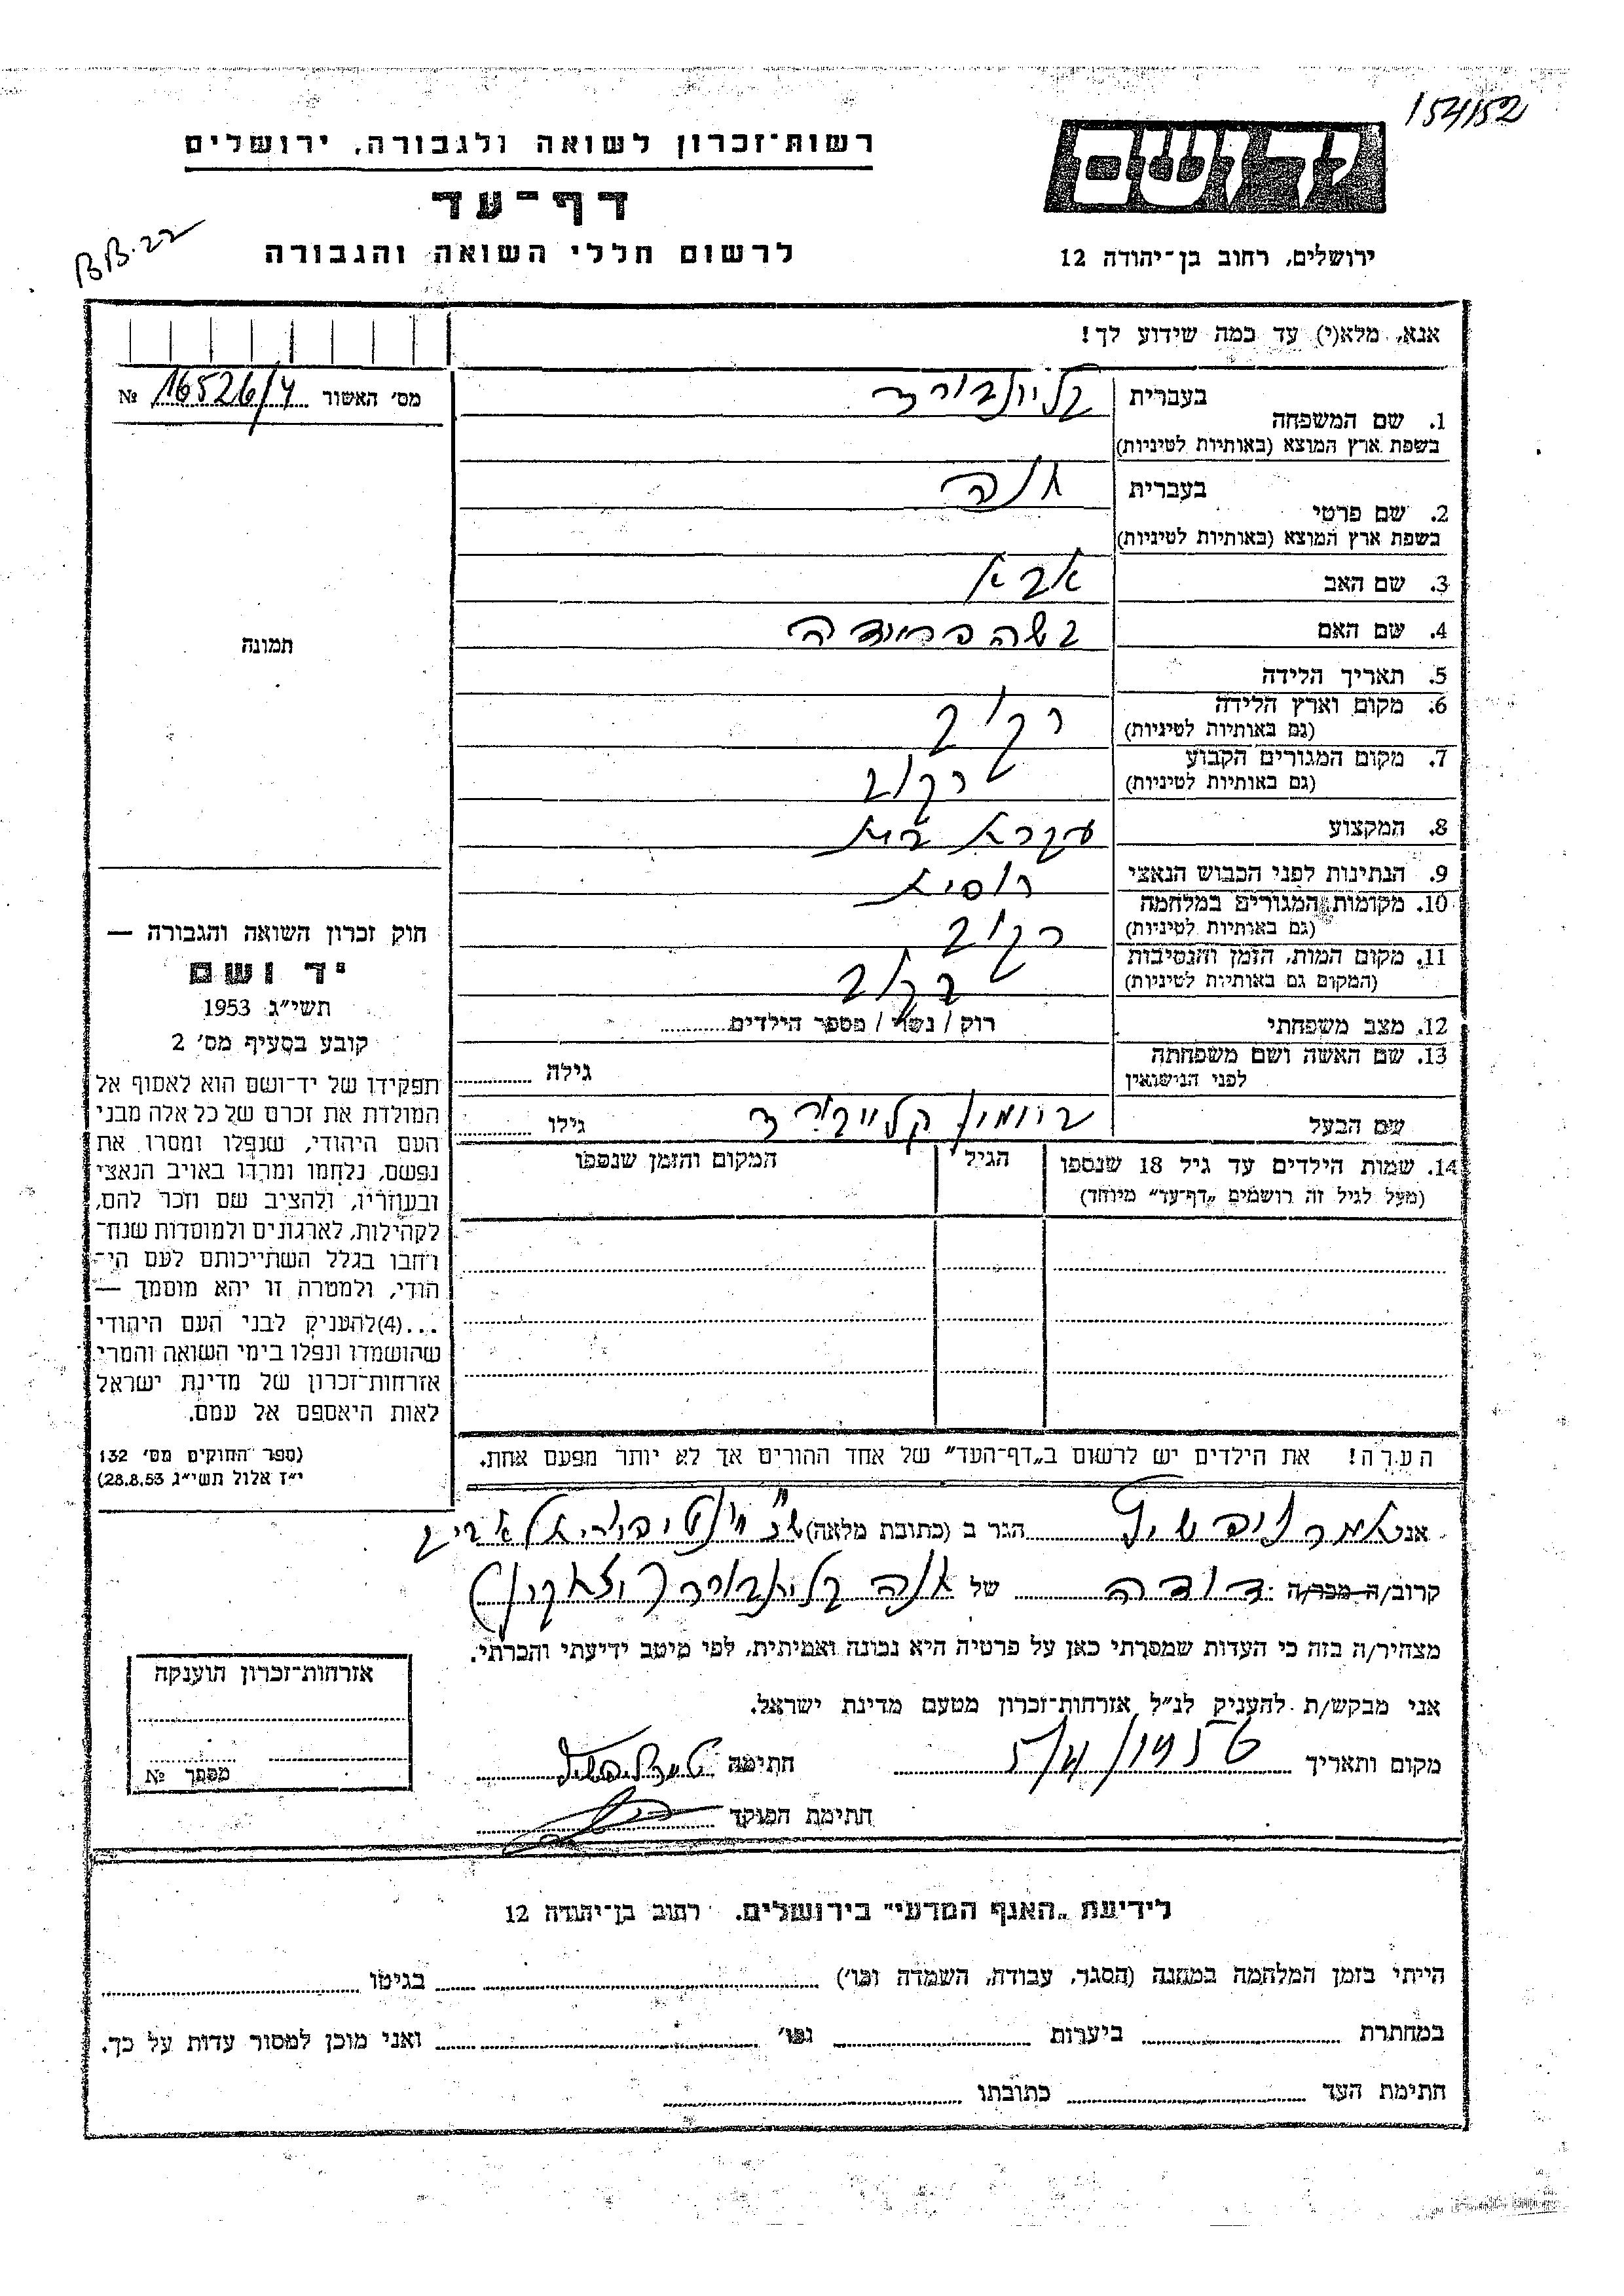 154/152
רשות־זכרון לשואה ולגבורה, ירושלים
יד ושם
דף־עד
B.B.22
לרשום חללי השואה והגבורה
ירושלים, רחוב בן־יהודה 12
אנא, מלא(י) עד כמה שידוע לך!
מס׳ האשור 16526/4 №
1. שם המשפחה
בעברית
בשפת ארץ המוצא (באותיות לטיניות)
2. שם פרטי
בעברית חנה
בשפת ארץ המוצא (באותיות לטיניות)
3. שם האב אבא
4. שם האם
5. תאריך הלידה
6. מקום וארץ הלידה
(גם באותיות לטיניות)
7. מקום המגורים הקבוע
(גם באותיות לטיניות)
8. המקצוע עקרת בית
9. הנתינות לפני הכבוש הנאצי רוסית
10. מקומות המגורים במלחמה
(גם באותיות לטיניות)
11. מקום המות, הזמן והנסיבות
(המקום גם באותיות לטיניות)
12. מצב משפחתי
רוק / נשוי / מספר הילדים
13. שם האשה ושם משפחתה
לפני הנישואין
גילה
שם הבעל
גילו
14. שמות הילדים עד גיל 18 שנספו
(מעל לגיל זה רושמים „דף־עד״ מיוחד)
הגיל
המקום והזמן שנספו
הערה! את הילדים יש לרשום ב„דף־העד״ של אחד ההורים אך לא יותר מפעם אחת.
תמונה
חוק זכרון השואה והגבורה —
יד ושם
תשי״ג 1953
קובע בסעיף מס׳ 2
תפקידו של יד־ושם הוא לאסוף אל
המולדת את זכרם של כל אלה מבני
העם היהודי, שנפלו ומסרו את
נפשם, נלחמו ומרדו באויב הנאצי
ובעוזריו, ולהציב שם וזכר להם,
לקהילות, לארגונים ולמוסדות שנח־
רחבו בגלל השתייכותם לעם הי־
הודי, ולמטרה זו יהא מוסמך —
...(4)להעניק לבני העם היהודי
שהושמדו ונפלו בימי השואה והמרי
אזרחות־זכרון של מדינת ישראל
לאות היאספם אל עמם.
(ספר החוקים מס׳ 132
י״ז אלול תשי״ג 28.8.53)
אני
הגר ב (כתובת מלאה)
קרוב/ה מכר/ה דודה של חנה
מצהיר/ה בזה כי העדות שמסרתי כאן על פרטיה היא נכונה ואמיתית, לפי מיטב ידיעתי והכרתי.
אני מבקש/ת להעניק לנ״ל אזרחות־זכרון מטעם מדינת ישראל.
מקום ותאריך 5/4/1956 חתימה
חתימת הפוקד
אזרחות־זכרון הוענקה
מסמך №
לידיעת „האגף המדעי״ בירושלים. רחוב בן־יהודה 12
הייתי בזמן המלחמה במחנה (הסגר, עבודה, השמדה וכו׳) בגיטו
במחתרת ביערות וכו׳ ואני מוכן למסור עדות על כך.
חתימת העד כתובתו